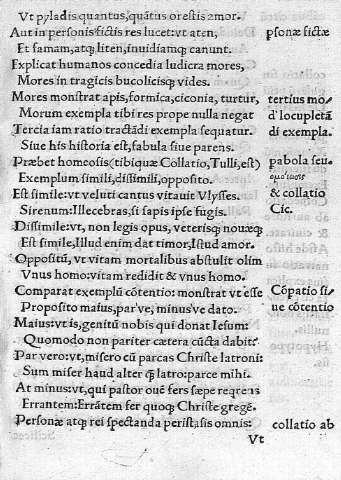 Vt pyladis quantus, quātus orestis amor.
Aut in personis fictis res lucet: vt aten, psonæ fictæ
Et famam, atq; liten, inuidiamq; canunt.
Explicat humanos comœdia ludicra mores,
Mores in tragicis bucolicisq; vides.
Mores monstrat apis, formica, ciconia, turtur, tertius mo⸗
Morum exempla tibi res prope nulla negat d'locupletā
Tercia iam ratio tractādi exempla sequatur. di exempla.
Siue his historia est, fabula siue parens.
Præbet homeosis (tibi quæ Collatio, Tulli, est) pabola seu
Exemplum simili, dissimili, opposito. ὁμοίωσις
Est simile: vt veluti cantus vitauit Vlysses. & collatio
Sirenum: Illecebras, si sapis ipse fugis. Cic.
Dissimile: vt, non legis opus, veterisq; nouæq;
Est simile, Illud enim dat timor, Istud amor.
Oppositū, vt vitam mortalibus abstulit olim
Vnus homo: vitam redidit & vnus homo.
Comparat exemplū cōtentio: monstrat vt esse Cōpatio si⸗
Proposito maius, par ve, minus ve dato. ue cōtentio
Maius: vt is, genitū nobis qui donat Iesum:
Quomodo non pariter cætera cūcta dabit
Par vero: vt, misero cū parcas Christe latroni:
Sum miser haud alter q̄ latro: parce mihi.
At minus: vt, qui pastor ouē fers sæpe reqreris
Errantem: Errātem fer quoq; Christe gregē.
Personæ atq; rei spectanda peristasis omnis: collatio ab
Vt